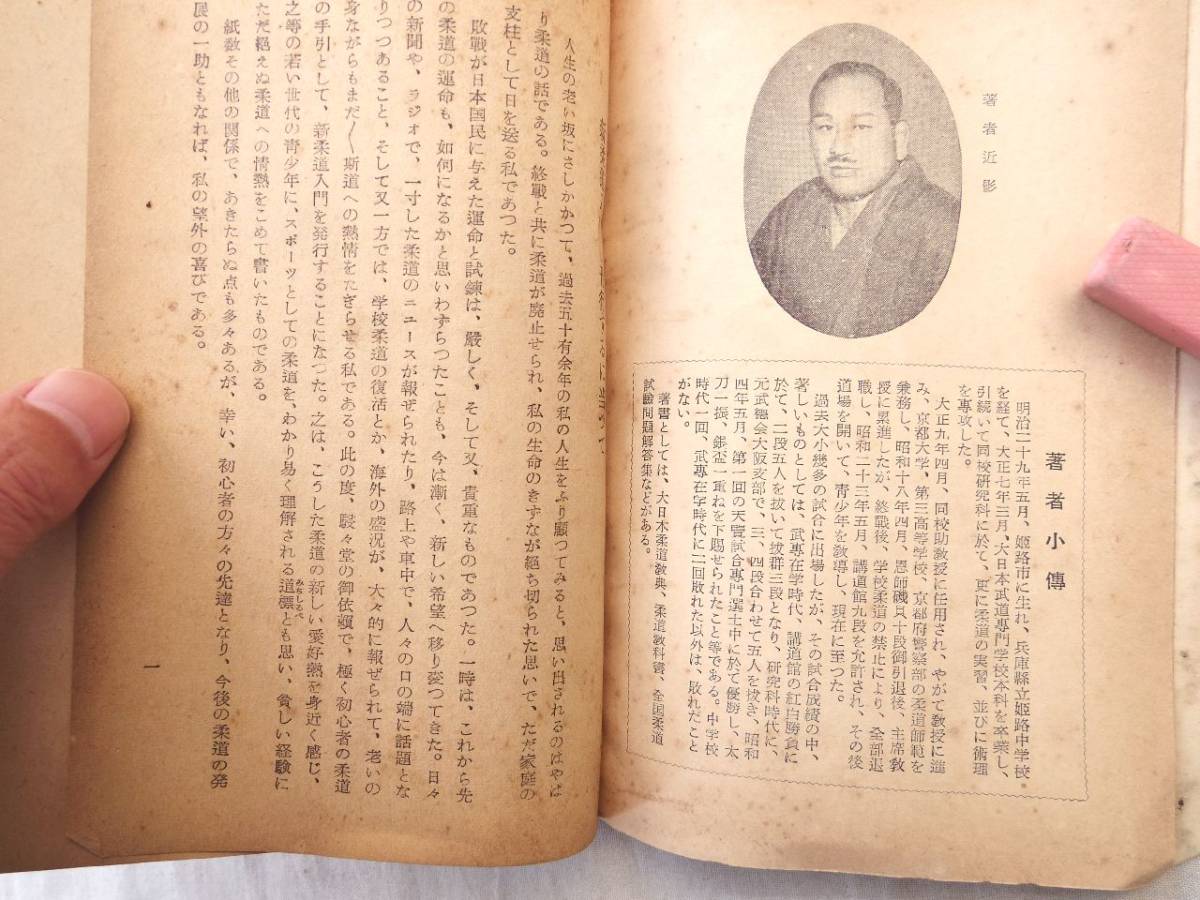 著者近影
著者小傳
明治二十九年五月、姫路市に生れ、兵庫縣立姫路中学校
を経て、大正七年三月、大日本武道專門学校本科を卒業し、
引続いて同校研究科に於て、更に柔道の実習、並びに術理
を專攻した。
大正九年四月、同校助教授に任用され、やがて教授に進
み、京都大学、第三高等学校、京都府警察部の柔道師範を
兼務し、昭和十八年四月、恩師磯貝十段御引退後、主席教
授に累進したが、終戰後、学校柔道の禁止により、全部退
職し、昭和二十三年五月、講道館九段を允許され、その後
道場を開いて、青少年を敎導し、現在に至つた。
過去大小幾多の試合に出場したが、その試合成績の中、
著しいものとしては、武專在学時代、講道館の紅白勝負に
於て、二段五人を抜いて抜群三段となり、研究科時代に、
元武德会大阪支部で、三、四段合わせて五人を抜き、昭和
四年五月、第一回の天覽試合專門選士中に於て優勝し、太
刀一振、銀盃一重ねを下賜せられたこと等である。中学校
時代一回、武專在学時代に二回敗れた以外は、敗れたこと
がない。
著書としては、大日本柔道敎典、柔道敎科書、全国柔道
試驗問題解答集などがある。
人生の老い坂にさしかかつて、過去五十有余年の私の人生をふり顧つてみると、思い出されるのはやは
り柔道の話である。終戰と共に柔道が廃止せられ、私の生命のきずなが絕ち切られた思いで、ただ家庭の
支柱として日を送る私であつた。
敗戰が日本国民に与えた運命と試錬は、嚴しく、そして又、貴重なものであつた。一時は、これから先
の柔道の運命も、如何になるかと思いわずらつたことも、今は漸く、新しい希望へ移り変つてきた。日々
の新聞や、ラジオで、一寸した柔道のニュースが報ぜられたり、路上や車中で、人々の口の端に話題とな
りつつあること、そして又一方では、学校柔道の復活とか、海外の盛況が、大々的に報ぜられて、老いの
身ながらもまだ〱斯道への熱情をたぎらせる私である。此の度、駸々堂の御依頼で、極く初心者の柔道
の手引として、新柔道入門を発行することになつた。之は、こうした柔道の新しい愛好熱を身近く感じ、
之等の若い世代の青少年に、スポーツとしての柔道を、わかり易く理解される道標とも思い、貧しい経験に
みちしるべ
ただ絕えぬ柔道への情熱をこめて書いたものである。
紙数その他の関係で、あきたらぬ点も多々あるが、幸い、初心者の方々の先達となり、今後の柔道の発
展の一助ともなれば、私の望外の喜びである。
一